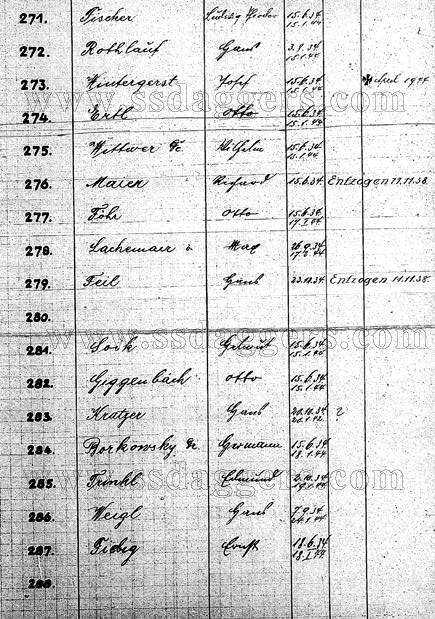 271. Fischer Ludwig Theodor 15.6.34. 15.1.44
272. Rothlauf Hans 3.9.34. 15.1.44
273. Wintergerst Josef 15.6.34. 15.1.44 April 1944
www.ssdaggers.com
274. Ertl Otto 15.6.34. 15.1.44
275. Wittwer Wilhelm 15.6.34. 15.1.44
276. Maier Richard 15.6.34. Entzogen 11.11.38.
277. Föhr Otto 15.6.34. 17.1.44
278. Lachemair Max 26.9.34. 17.1.44
279. Feil Hans 22.12.34. Entzogen 11.11.38.
280.
www.ssdaggers.com
281. Helmut 15.6.34. 15.1.44
282. Giggenbach Otto 15.6.34. 15.1.44
283. Kratzer Hans 20.10.34. 20.1.42. ?
284. Borkowsky Hermann 15.6.34. 18.1.44
285. Trinkl Edmund 2.10.34. 19.1.44
www.ssdaggers.com
286. Weigl Hans 7.9.34. 24.1.44
287. Fidig Ernst 18.6.34. 18.1.44.
288.